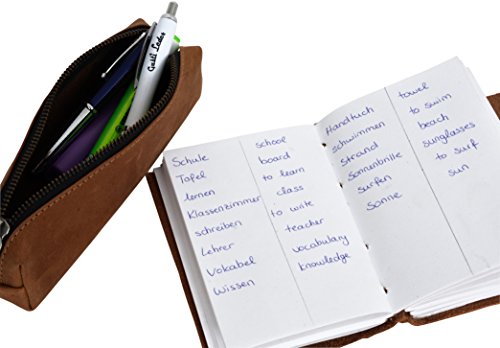 Gusti Leder
Schule
Tafel
lernen
Klassenzimmer
schreiben
Lehrer
Vokabel
Wissen
school
board
to learn
class
to write
teacher
vocabulary
knowledge
Handtuch
schwimmen
Strand
Sonnenbrille
surfen
Sonne
towel
to swim
beach
sunglasses
to surf
sun